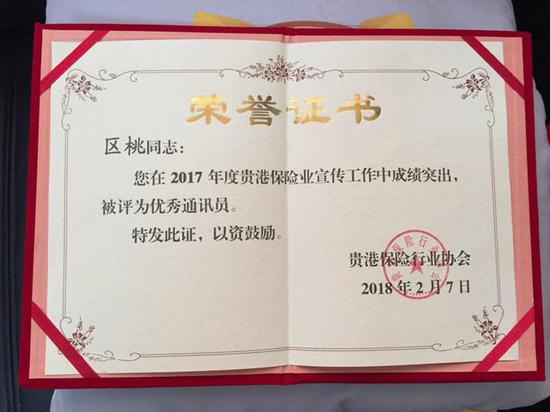 荣誉证书
区桃同志：
您在2017年度贵港保险业宣传工作中成绩突出，
被评为优秀通讯员。
特发此证，以资鼓励。
贵港保险行业协会
2018年2月7日